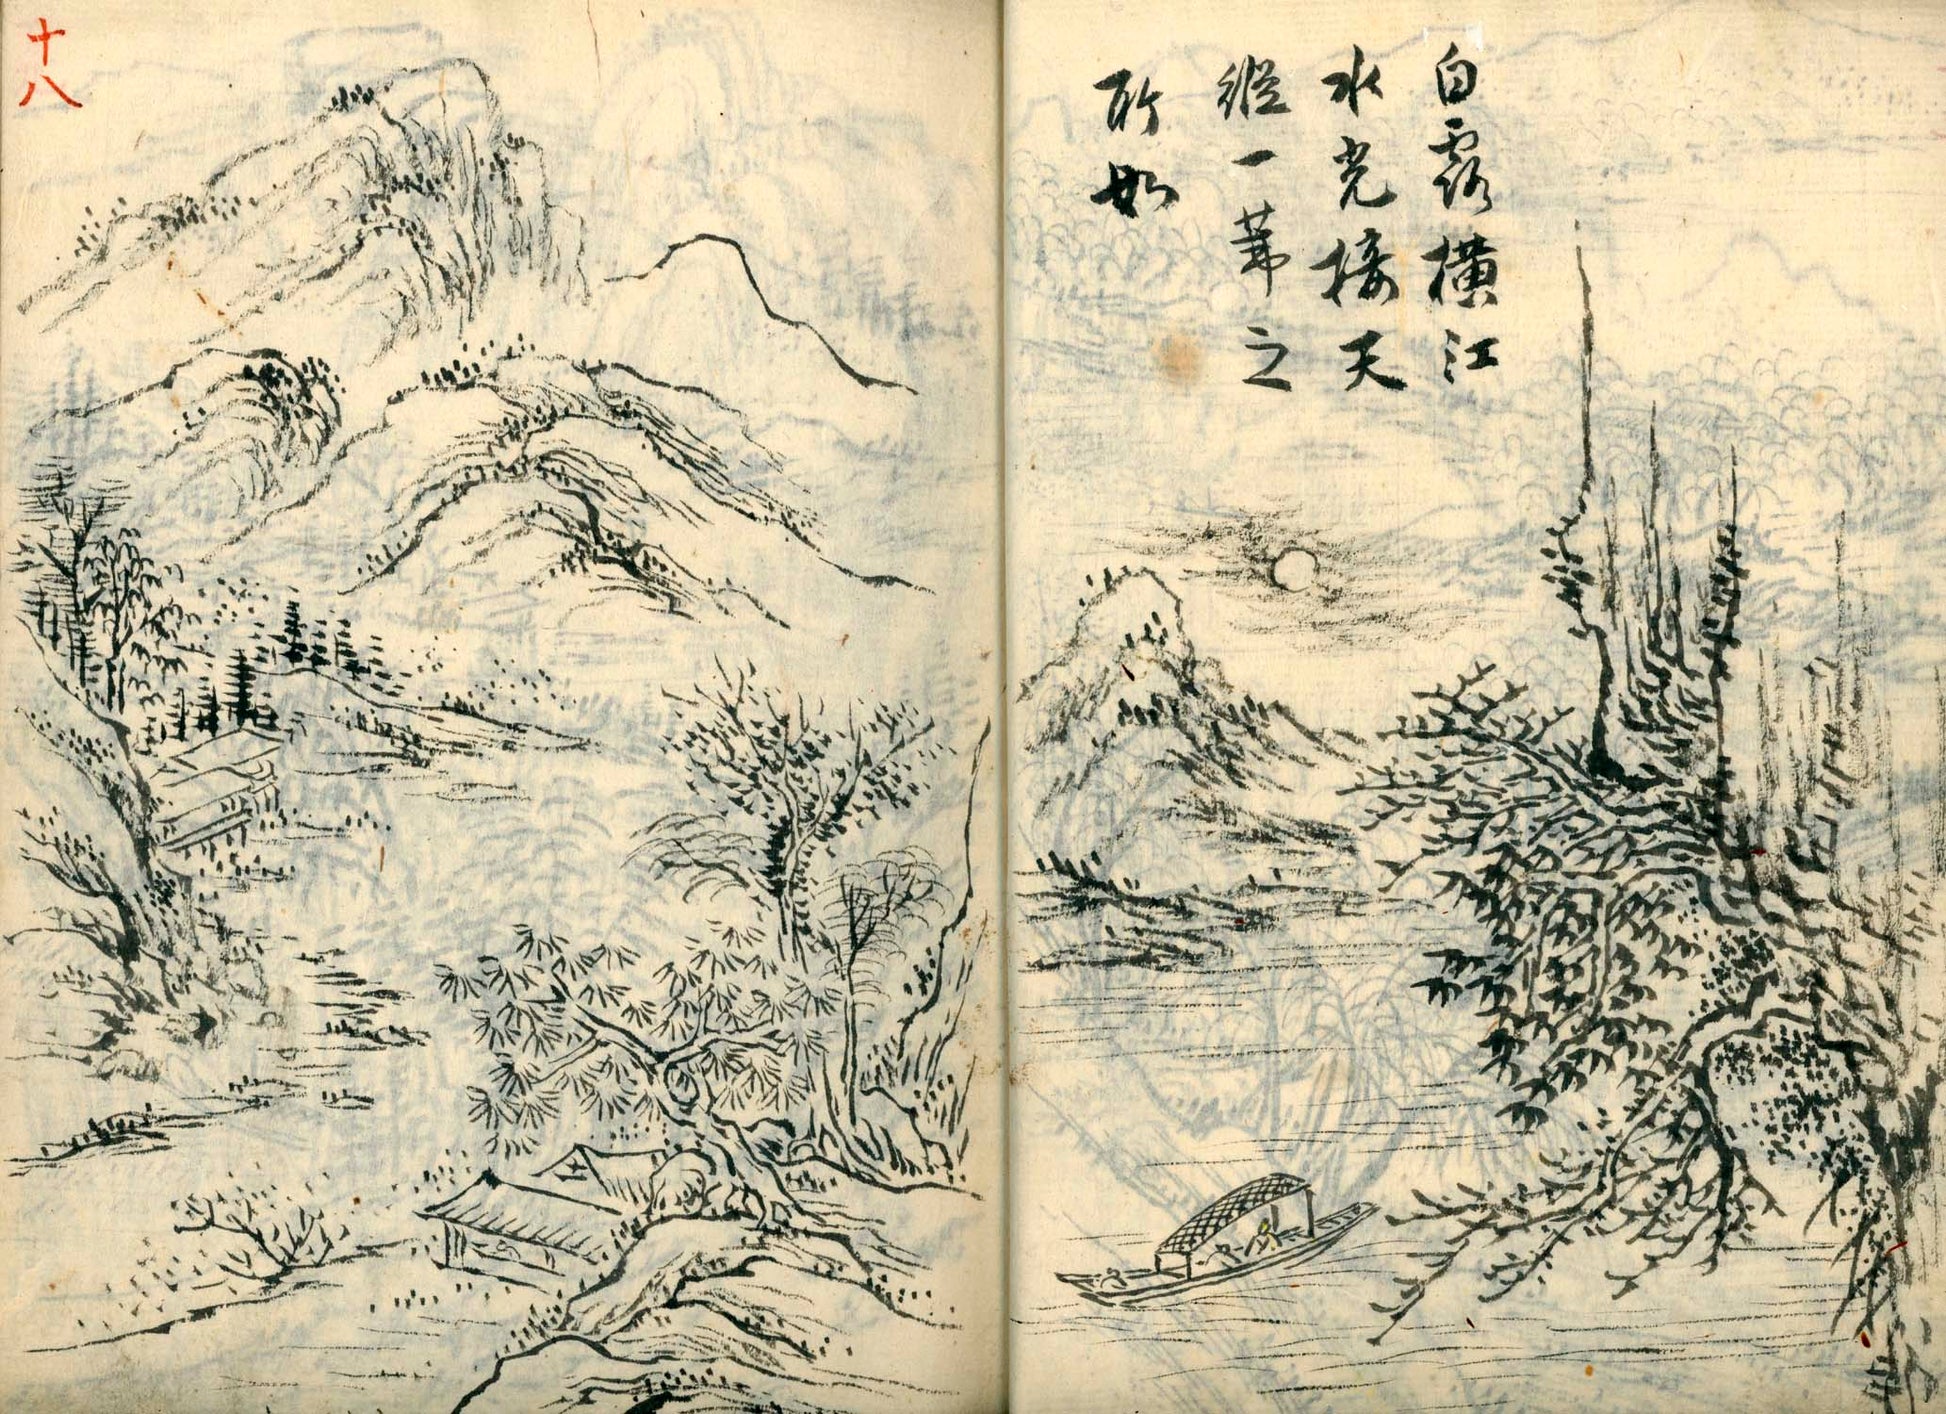 白露橫江
水光接天
縱一葦之
所如
十八